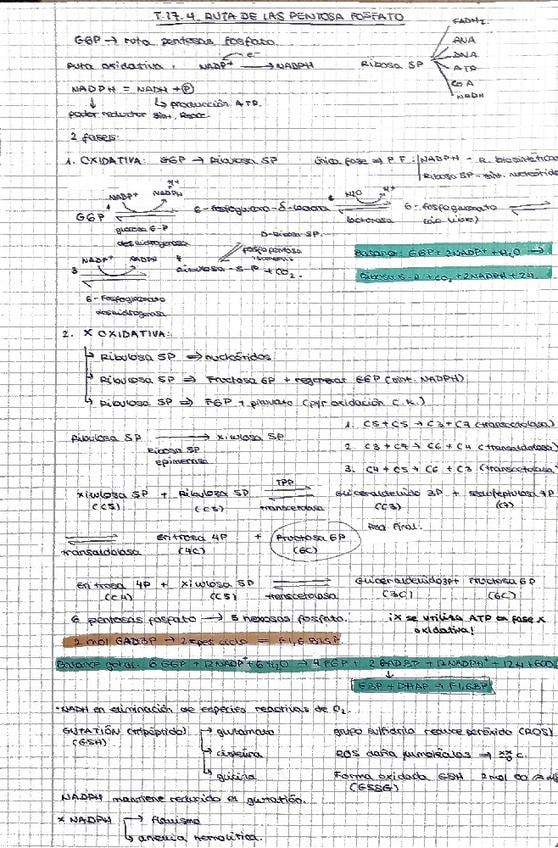 T.17.4. RUTA DE LAS PENTOSA FOSFATO
G6P → ruta pentosas fosfato.
FADH2
RNA
DNA
ATP
CoA
NADH
Ruta oxidativa. NADP+ e- → NADPH Ribosa 5P
NADPH = NADH + P
↓ ↳ producción ATP.
poder reductor
2 fases:
1. OXIDATIVA: G6P → Ribulosa 5P única fase ⇒ P.F. NADPH - R. biosintéticas
Ribosa 5P - sint. nucleótidos
NADP+ NADPH H+ H2O H+
G6P 6-fosfoglucono-δ-lactona 6-fosfogluconato
glucosa 6-P lactonasa
deshidrogenasa
D-Ribosa 5P.
fosfopentosa
isomerasa
NADP+ NADPH
3 4 Ribulosa-5-P + CO2.
6-fosfogluconato
deshidrogenasa
Balance: G6P + 2NADP+ + H2O ⇒
Ribosa 5-P + CO2 + 2NADPH + 2H
2. X OXIDATIVA:
Ribulosa 5P ⇒ nucleótidos
Ribulosa 5P ⇒ Fructosa 6P + regenerar G6P (sint. NADPH)
Ribulosa 5P ⇒ F6P + piruvato (pyr oxidación C.K.)
1. C5+C5 → C3+C7 (transcetolasa)
Ribulosa 5P → xilulosa 5P
2. C3+C7 → C6+C4 (transaldolasa)
epimerasa
3. C4+C5 → C6+C3 (transcetolasa
xilulosa 5P + Ribulosa 5P TPP Gliceraldehído 3P + sedoheptulosa 7P
(C5) (C5) transcetolasa (C3) (C7)
Eritrosa 4P + Fructosa 6P Prod. Final.
transaldolasa (4C) (6C)
Eritrosa 4P + xilulosa 5P Gliceraldehído3P + Fructosa 6P
(C4) (C5) transcetolasa (3C) (6C)
6 pentosas fosfato → 5 hexosas fosfato. ¡X se utiliza ATP en fase X
oxidativa!
2 mol GAD3P → = F1,6BisP
Balance gral: 6 G6P + 12NADP+ + 6H2O → 4 F6P + 2 GAD3P + 12NADPH + 12H + 6CO2
G3P + DHAP → F1,6BP
·NADH en eliminación de especies reactivas de O2.
GLUTATIÓN (tripéptido) → glutamato grupo sulfhidrilo reduce peróxido (ROS)
(GSH) → cisteína ROS daña
→ glicina Forma oxidada GSH 2 mol
(GSSG)
NADPH mantiene reducido el glutatión.
X NADPH → favismo
→ anemia hemolítica.